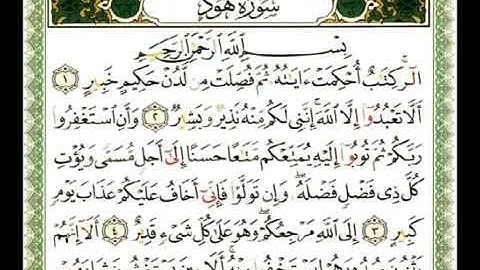 سُورَةُ هُودٍ
بِسْمِ ٱللَّهِ ٱلرَّحْمَٰنِ ٱلرَّحِيمِ
الٓرۚ كِتَٰبٌ أُحْكِمَتْ ءَايَٰتُهُۥ ثُمَّ فُصِّلَتْ مِن لَّدُنْ حَكِيمٍ خَبِيرٍ ١
أَلَّا تَعْبُدُوٓا۟ إِلَّا ٱللَّهَۚ إِنَّنِى لَكُم مِّنْهُ نَذِيرٌ وَبَشِيرٌ ٢ وَأَنِ ٱسْتَغْفِرُوا۟
رَبَّكُمْ ثُمَّ تُوبُوٓا۟ إِلَيْهِ يُمَتِّعْكُم مَّتَٰعًا حَسَنًا إِلَىٰٓ أَجَلٍ مُّسَمًّى وَيُؤْتِ
كُلَّ ذِى فَضْلٍ فَضْلَهُۥۖ وَإِن تَوَلَّوْا۟ فَإِنِّىٓ أَخَافُ عَلَيْكُمْ عَذَابَ يَوْمٍ
كَبِيرٍ ٣ إِلَى ٱللَّهِ مَرْجِعُكُمْۖ وَهُوَ عَلَىٰ كُلِّ شَىْءٍ قَدِيرٌ ٤ أَلَآ إِنَّهُمْ